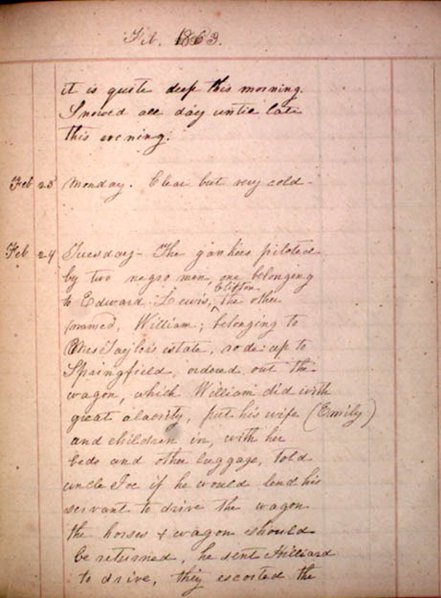 Feb. 1863.
it is quite deep this morning.
Snowed all day until late
this evening.
Feb 23 Monday. Clear but very cold-
Feb. 24 Tuesday- The yankees piloted
by two negro men, one belonging
Clifton
to Edward Lewis, ^ the other
(named, William; belonging to
Taylor's estate, rode up to
Springfield, ordered out the
wagon, which William did with
great alacrity, put his wife (Emily)
and children in, with her
beds and other luggage, told
uncle Joe if he would lend his
servant to drive the wagon
the horses & wagon should
be returned, he sent Hilliard
to drive, they escorted the